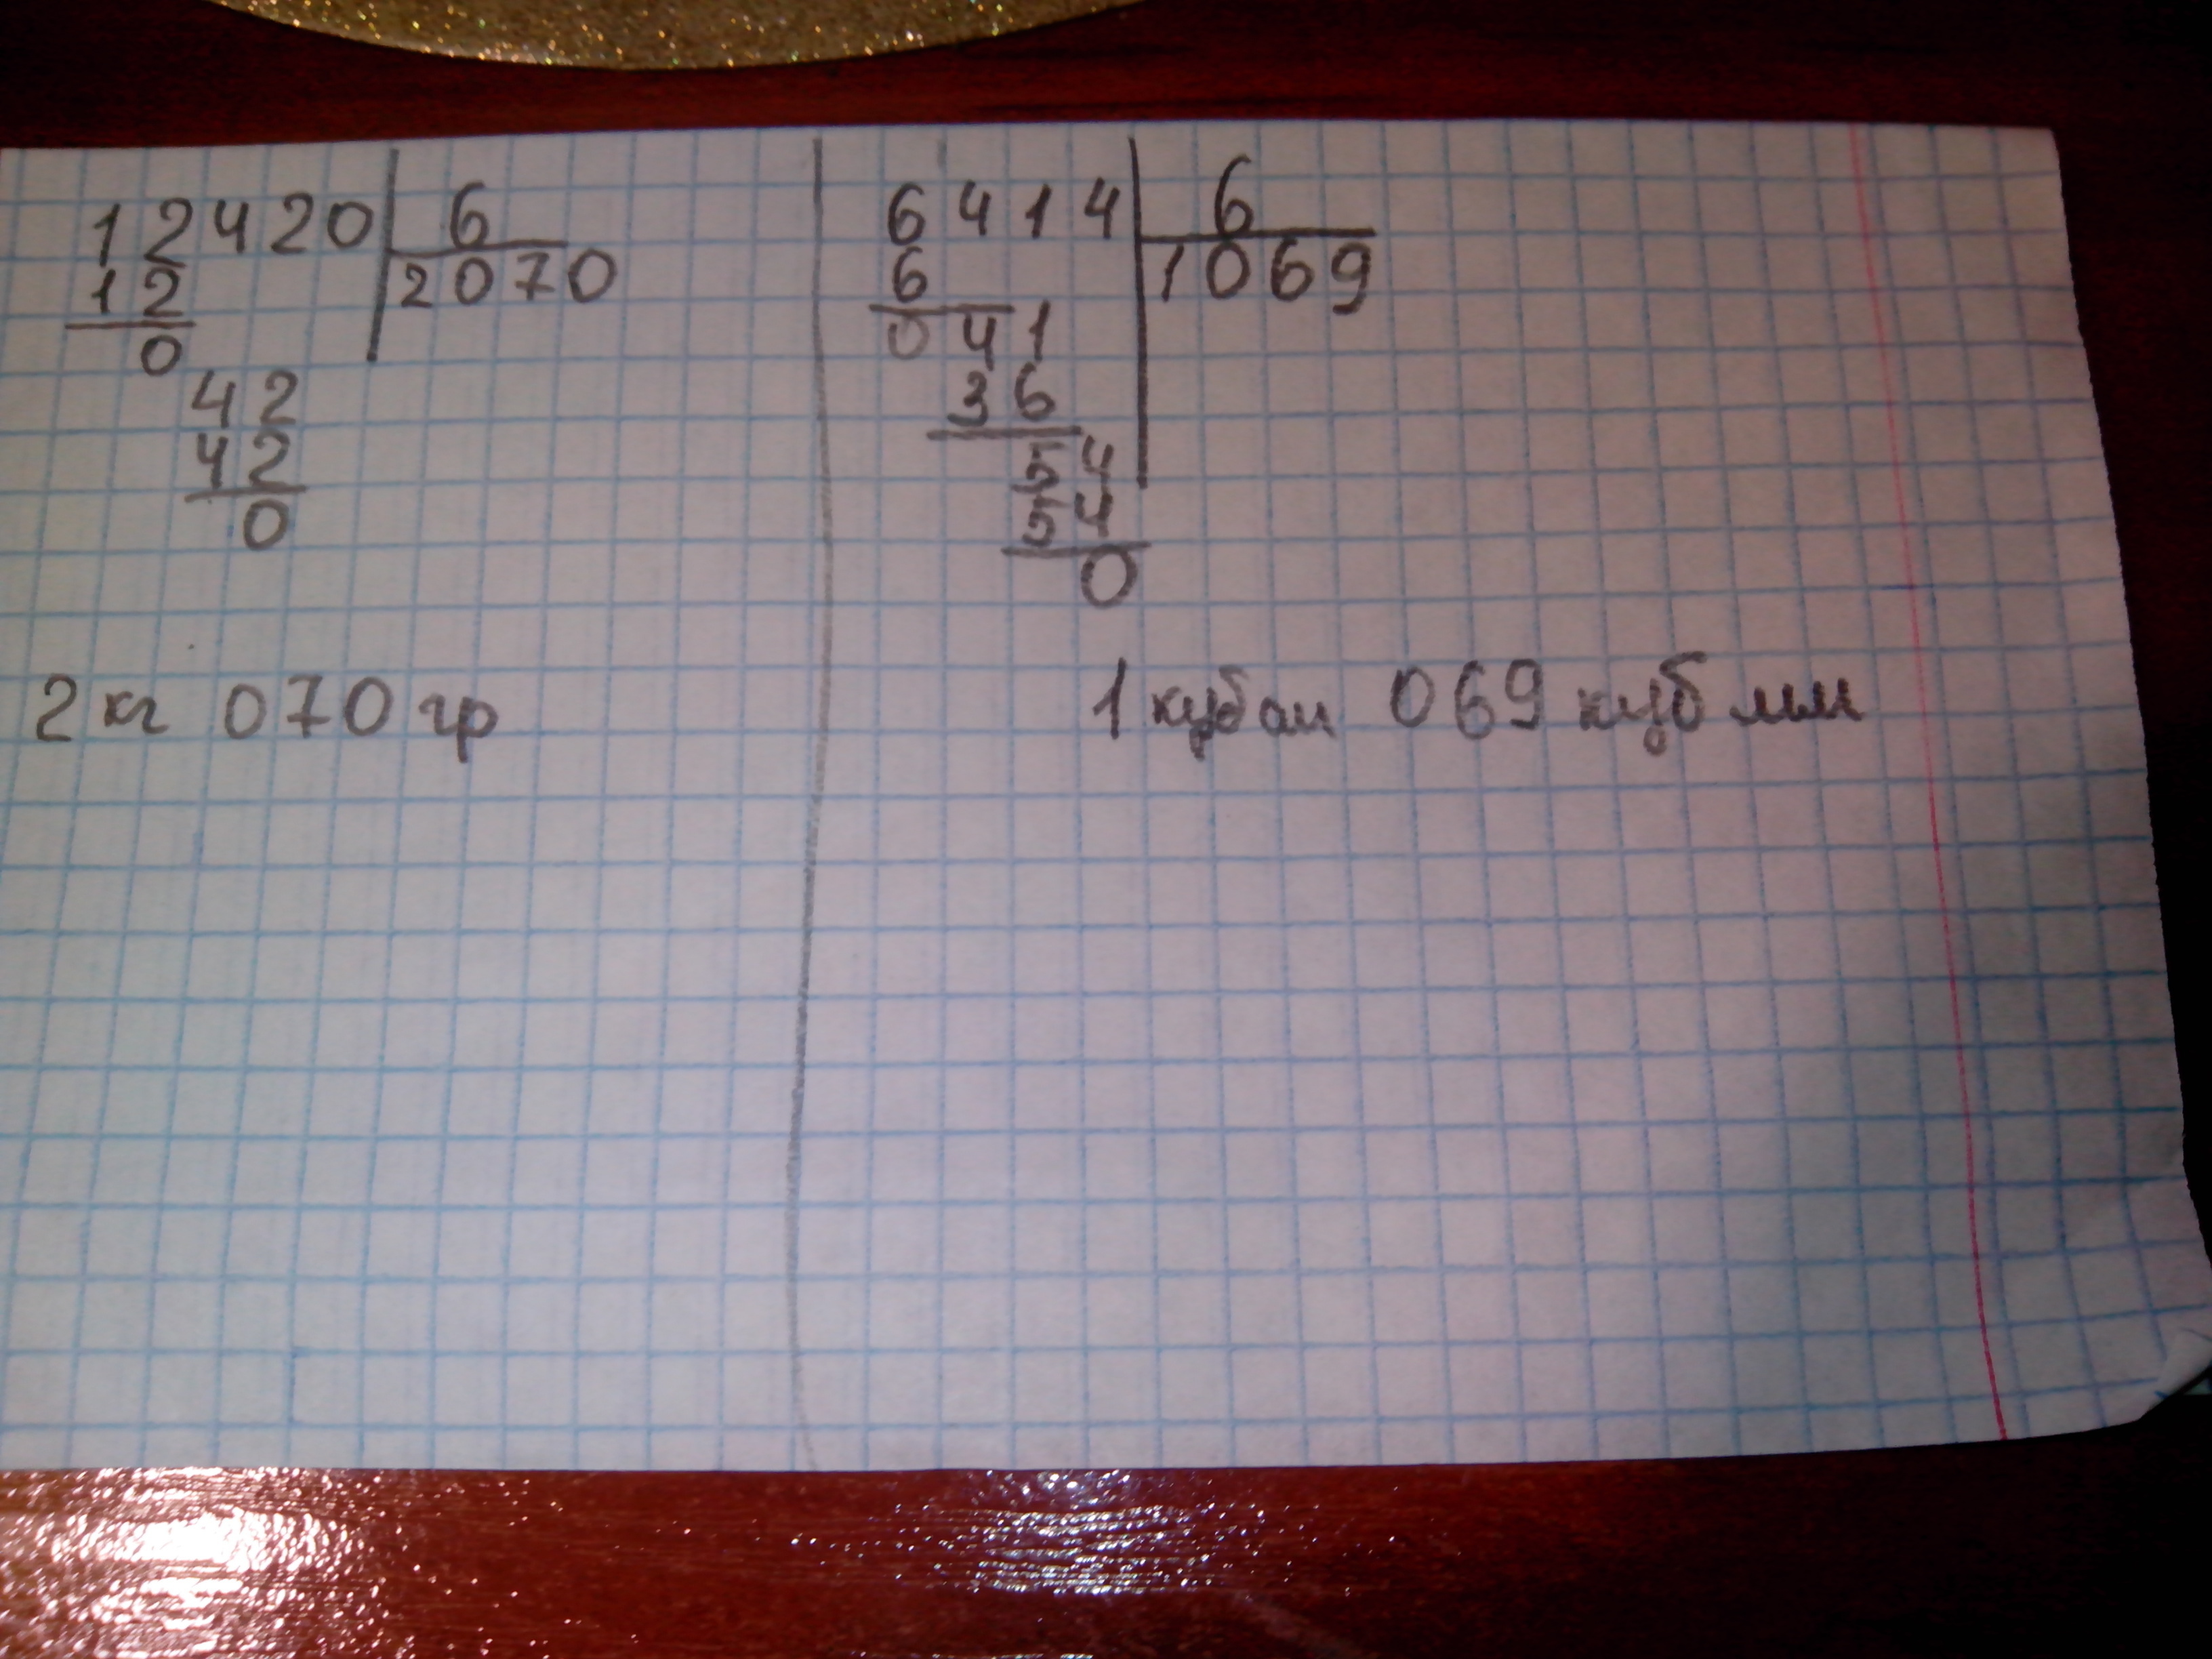 12420 6
12 2070
0
42
42
0
2 кг 070 гр
6414 6
6 1069
041
36
54
54
0
1 куб см 069 куб мм